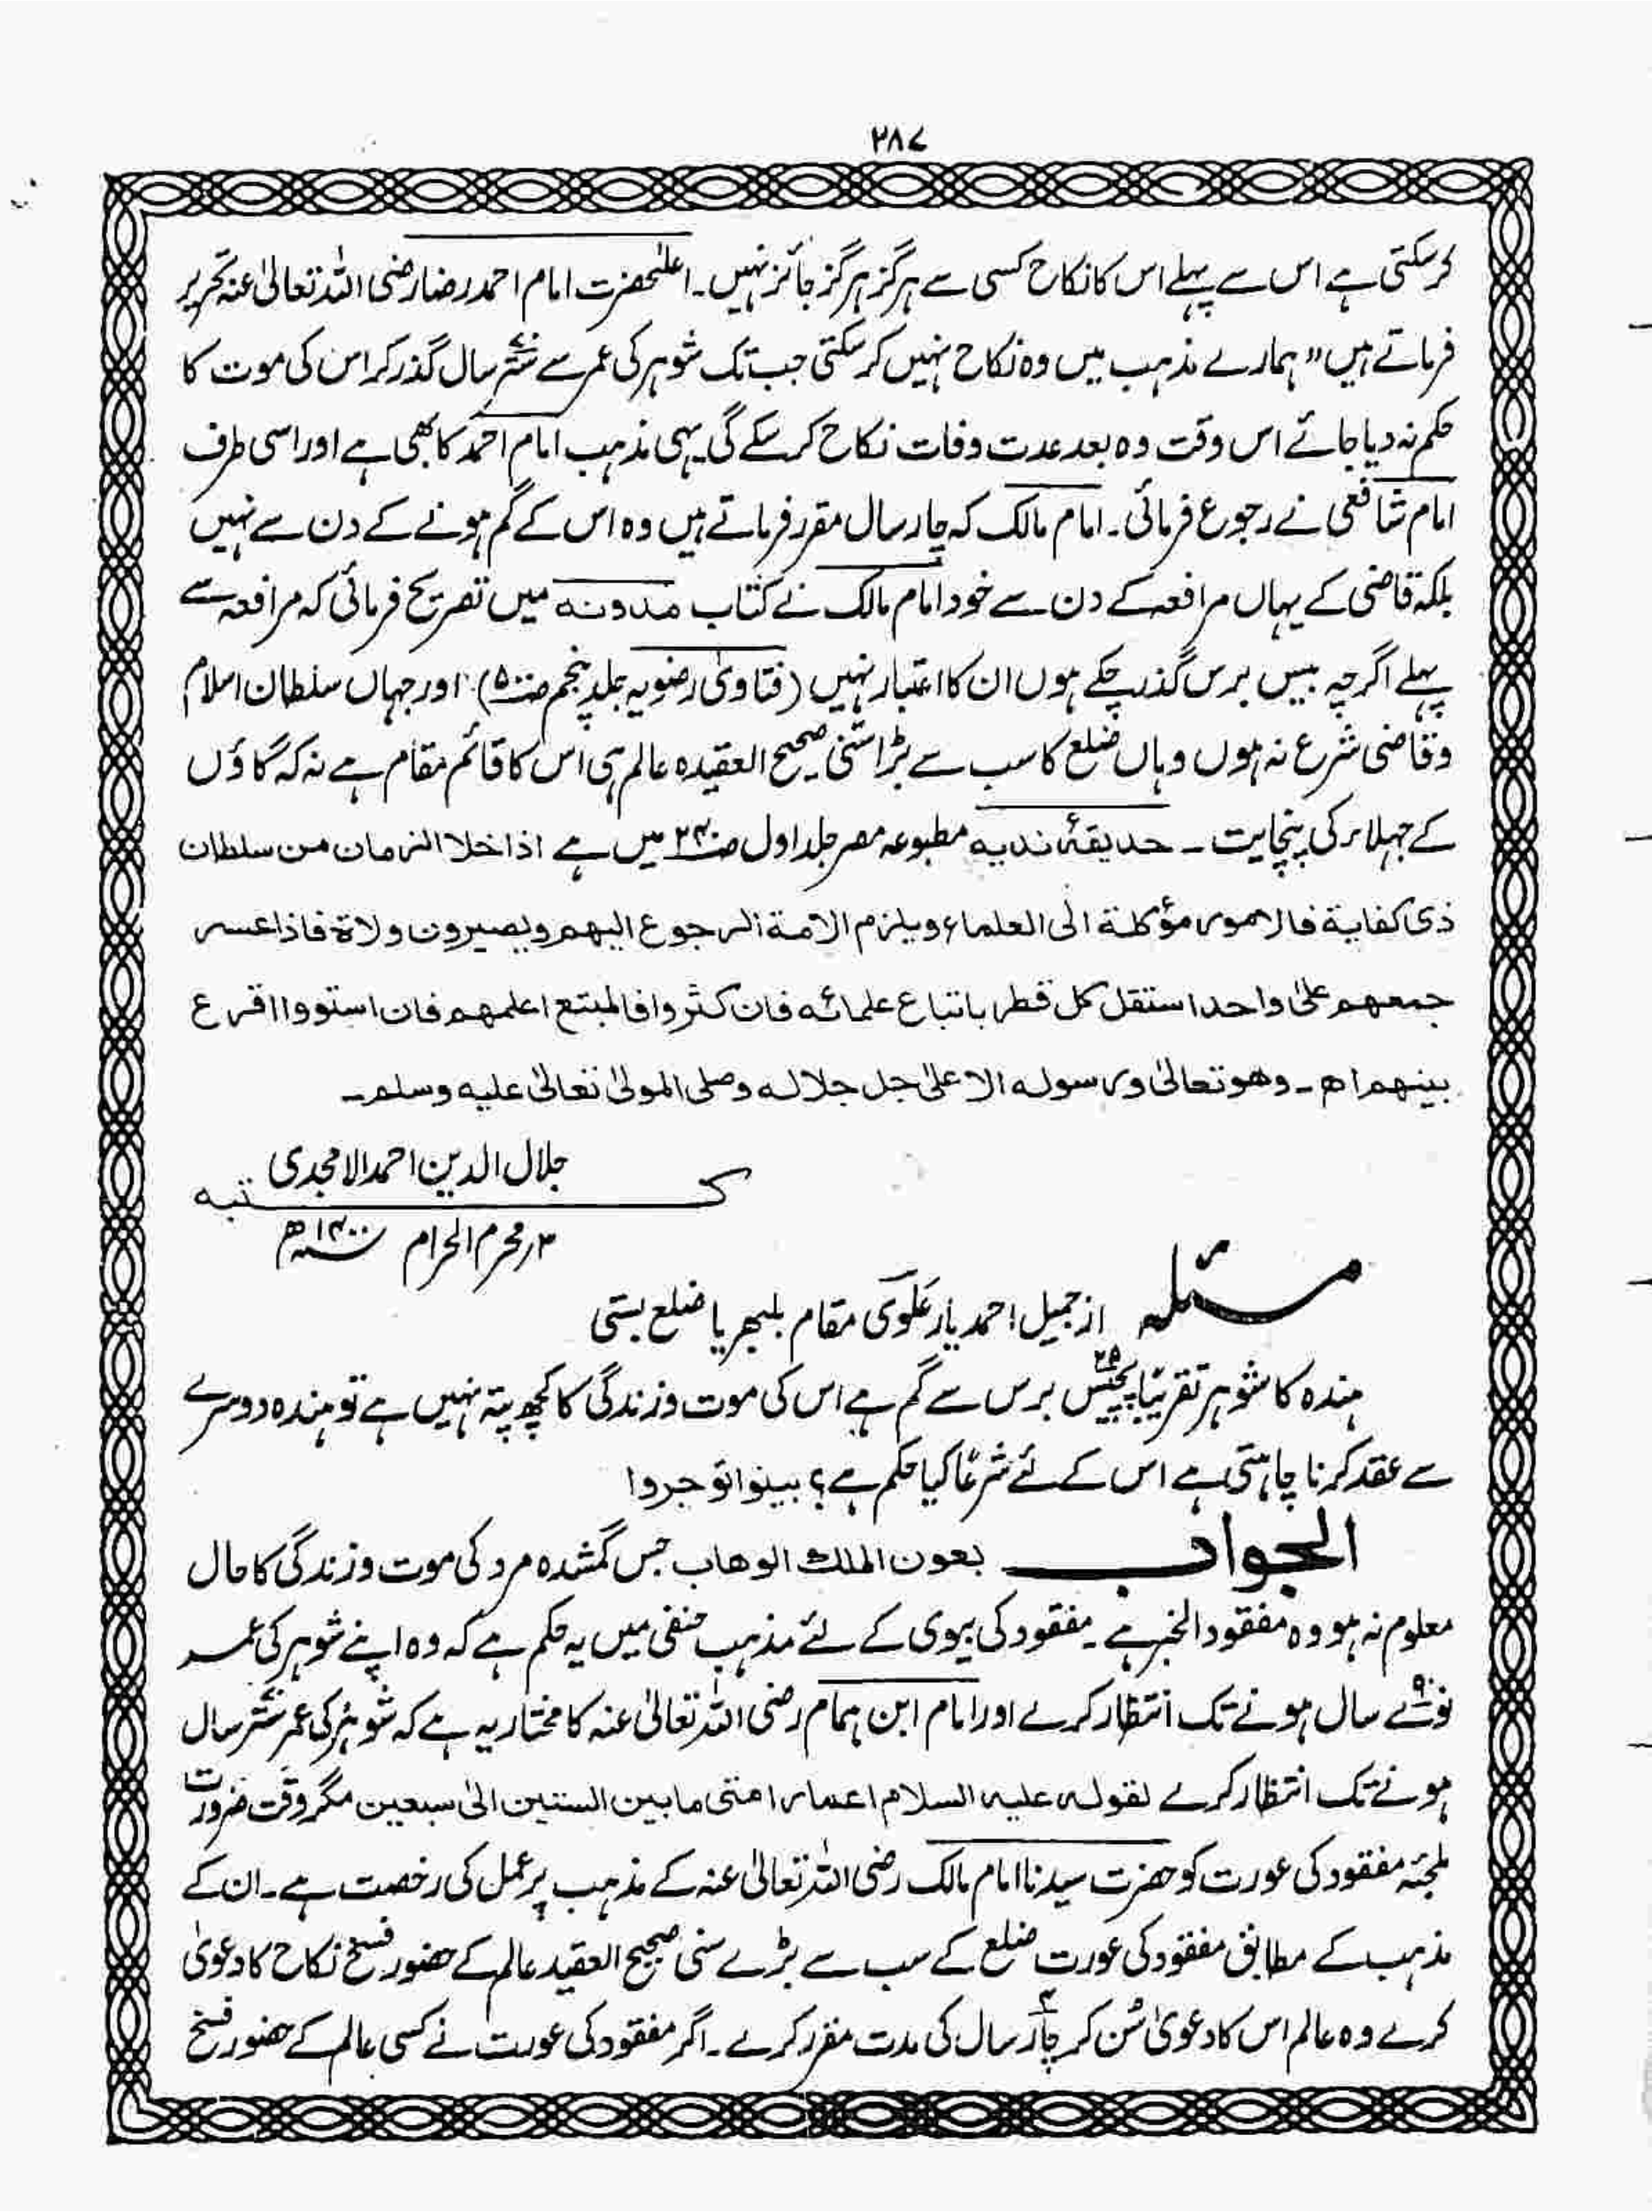 ۲۸۷
کرسکتی ہے اس سے پہلے اس کا نکاح کسی سے ہرگز ہرگز جائز نہیں۔ اعلٰحضرت امام احمد رضا رضی اللہ تعالیٰ عنہ تحریر
فرماتے ہیں " ہمارے مذہب میں وہ نکاح نہیں کرسکتی جب تک شوہر کی عمر سے ستّر سال گذر کر اس کی موت کا
حکم نہ دیا جائے اس وقت وہ بعد عدت وفات نکاح کرسکے گی یہی مذہب امام احمد کا بھی ہے اور اسی طرف
امام شافعی نے رجوع فرمائی۔ امام مالک کہ چار سال مقرر فرماتے ہیں وہ اس کے گم ہونے کے دن سے نہیں
بلکہ قاضی کے یہاں مرافعہ کے دن سے خود امام مالک نے کتاب مدونہ میں تصریح فرمائی کہ مرافعہ سے
پہلے اگرچہ بیس برس گذر چکے ہوں ان کا اعتبار نہیں (فتاویٰ رضویہ جلد پنجم ص۵۰۰) اور جہاں سلطان اسلام
وقاضی شرع نہ ہوں وہاں ضلع کا سب سے بڑا سُنی صحیح العقیدہ عالم ہی اس کا قائم مقام ہے نہ کہ گاؤں
کے جہلاء کی پنچایت ۔ حدیقۂ ندیہ مطبوعہ مصر جلد اول ص۲۴۰ میں ہے اذا خلا الزمان من سلطان
ذی کفایة فالامور مؤکلة الی العلماء ویلزم الامة الرجوع الیھم ویصیرون ولاة فاذا عسر
جمعھم علیٰ واحد استقل کل قطر باتباع علمائه فان کثروا فالمتبع اعلمھم فان استووا اقرع
بینھم اھ ۔ وھو تعالیٰ ورسوله الاعلیٰ جل جلاله وصلی المولیٰ تعالیٰ علیه وسلم۔
جلال الدین احمد الامجدی
کتبہ
۳؍ محرم الحرام ۱۴۰۰ھ
مسئلہ از جمیل احمد یار علوی مقام بلبھریا ضلع بستی
ہندہ کا شوہر تقریبًا پچیس ۲۵ برس سے گم ہے اس کی موت وزندگی کا کچھ پتہ نہیں ہے تو ہندہ دوسرے
سے عقد کرنا چاہتی ہے اس کے لئے شرعًا کیا حکم ہے؟ بینوا توجروا
الجواب بعون الملك الوھاب جس گمشدہ مرد کی موت وزندگی کا حال
معلوم نہ ہو وہ مفقود الخبر ہے ۔ مفقود کی بیوی کے لئے مذہب حنفی میں یہ حکم ہے کہ وہ اپنے شوہر کی عمر
نوّے ۹۰ سال ہونے تک انتظار کرے اور امام ابن ہمام رضی اللہ تعالیٰ عنہ کا مختار یہ ہے کہ شوہر کی عمر ستّر سال
ہونے تک انتظار کرے لقوله علیه السلام اعمار امتی مابین الستین الیٰ سبعین مگر وقت ضرورت
ملجئہ مفقود کی عورت کو حضرت سیدنا امام مالک رضی اللہ تعالیٰ عنہ کے مذہب پر عمل کی رخصت ہے۔ ان کے
مذہب کے مطابق مفقود کی عورت ضلع کے سب سے بڑے سنی صحیح العقیدہ عالم کے حضور فسخ نکاح کا دعویٰ
کرے وہ عالم اس کا دعویٰ سُن کر چار ۴ سال کی مدت مقرر کرے ۔ اگر مفقود کی عورت نے کسی عالم کے حضور فسخ